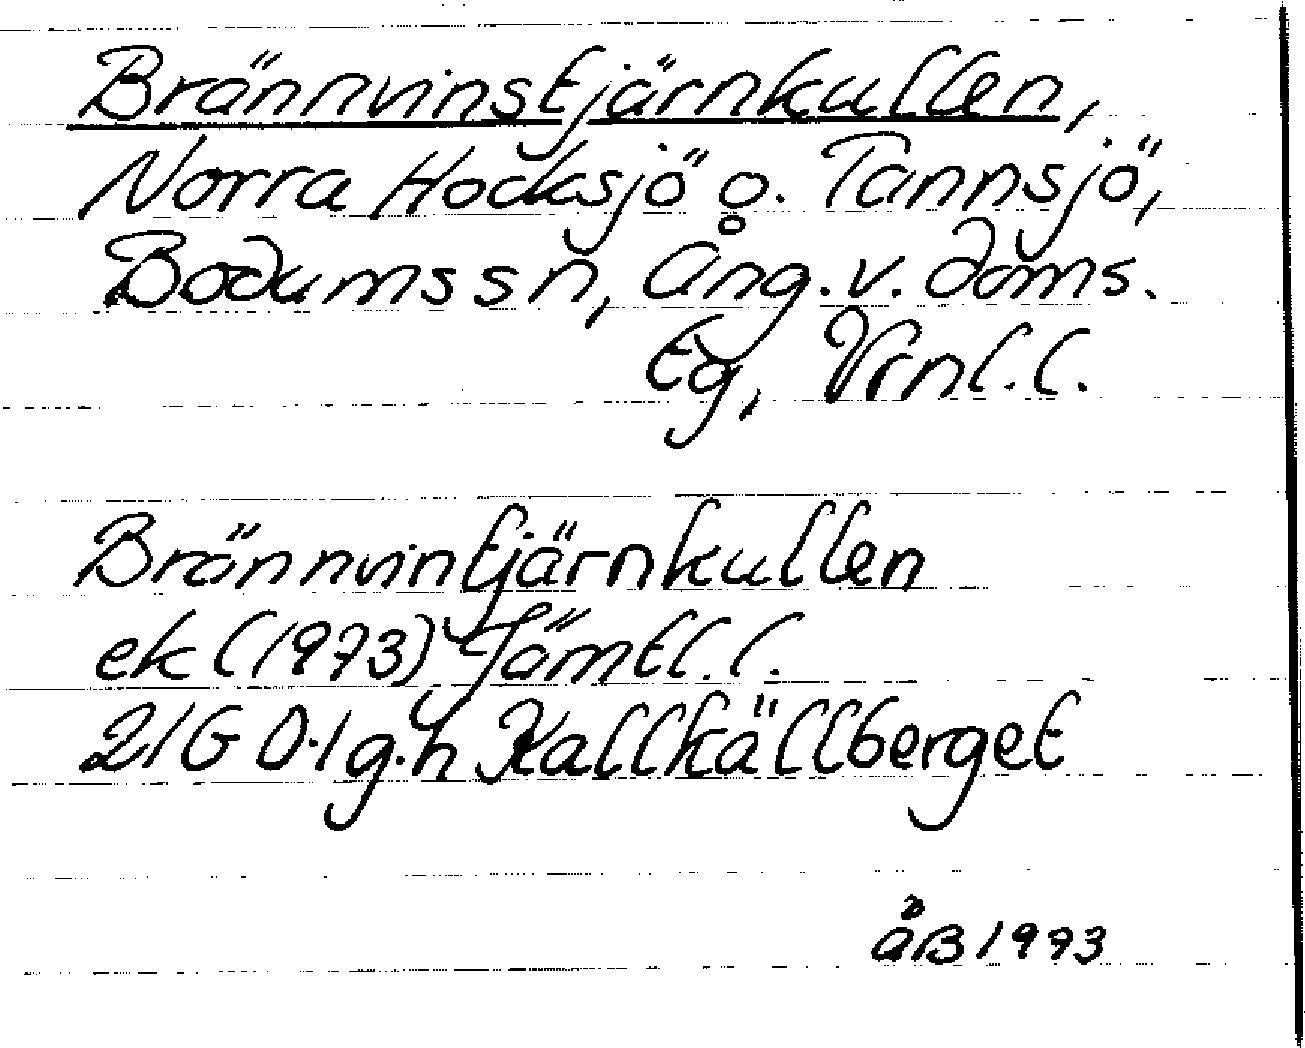 Brännvinstjärnkullen,
Norra Hocksjö o. Tannsjö,
Bodums sn, Ång. v. doms.
Eg, Vrnl. l.
Brännvintjärnkullen
ek (1973) Jämtl. l.
21G 0-1 g.h Kallkällberget
åB 1973